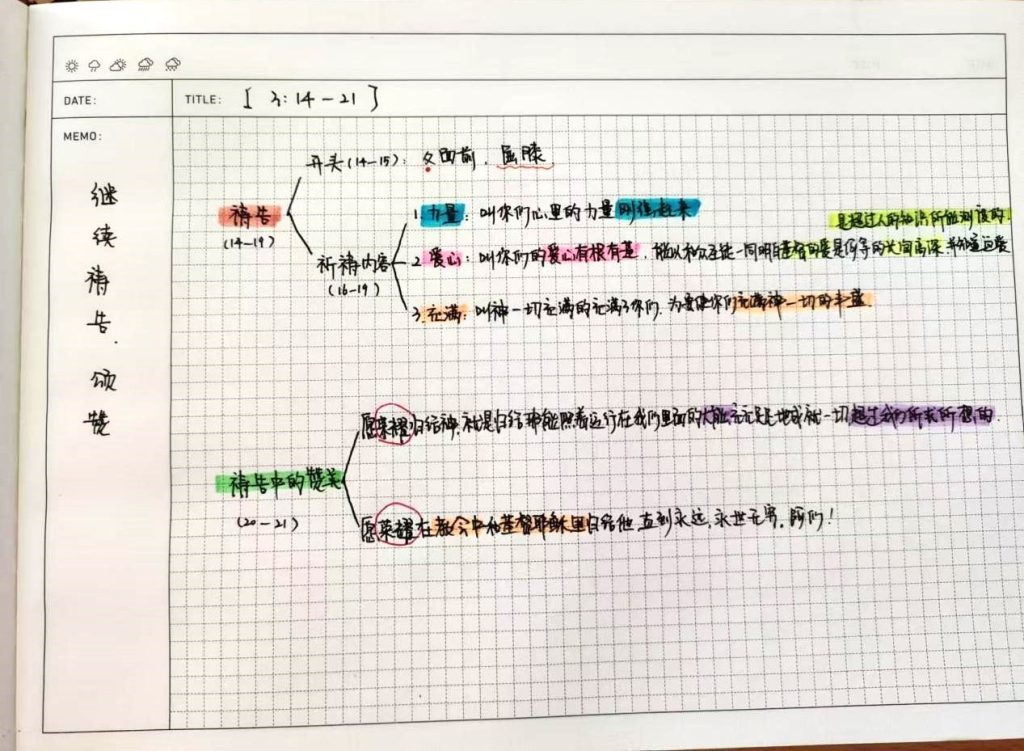 DATE:
TITLE: [ 3:14-21 ]
MEMO:
继续祷告.颂赞
开头(14-15): 父面前. 屈膝
祷告
(14-19)
祈祷内容
(16-19)
1.力量: 叫你们心里的力量刚强起来
是超过人的知识所能测度的.
2 爱心: 叫你们的爱心有根有基, 能以和众圣徒一同明白基督的爱是何等的长阔高深.并知道这爱
3.充满: 叫神一切充满的充满了你们. 为要使你们充满神一切的丰盛
愿荣耀归给神.就是归给神能照着运行在我们里面的大能充充足足地成就一切超过我们所求所想的.
祷告中的赞美
(20-21)
愿荣耀在教会中和基督耶稣里归给他 直到永远,永世无穷. 阿们!